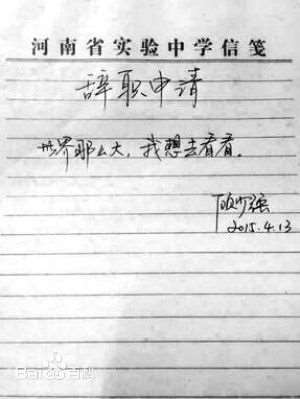 河南省实验中学信笺
辞职申请
世界那么大，我想去看看。
2015.4.13
Baidu百科